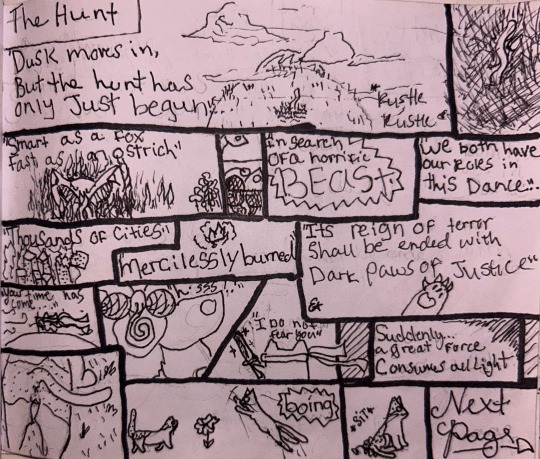 The Hunt
Dusk moves in,
But the hunt has
only Just begun,
*Rustle
Rustle*
"Smart as a Fox
Fast as an Ostrich"
"in search
OF a horrific
BEAST
"We both have
our Roles in
this Dance".
Thousands of Cities"
Mercilessly burned
"Its reign of terror
Shall be ended with
Dark paws of Justice"
Your time has
come
sss
"I Do not
fear you"
Suddenly...
a great force
Consumes all Light
boing
*Sit*
Next
page